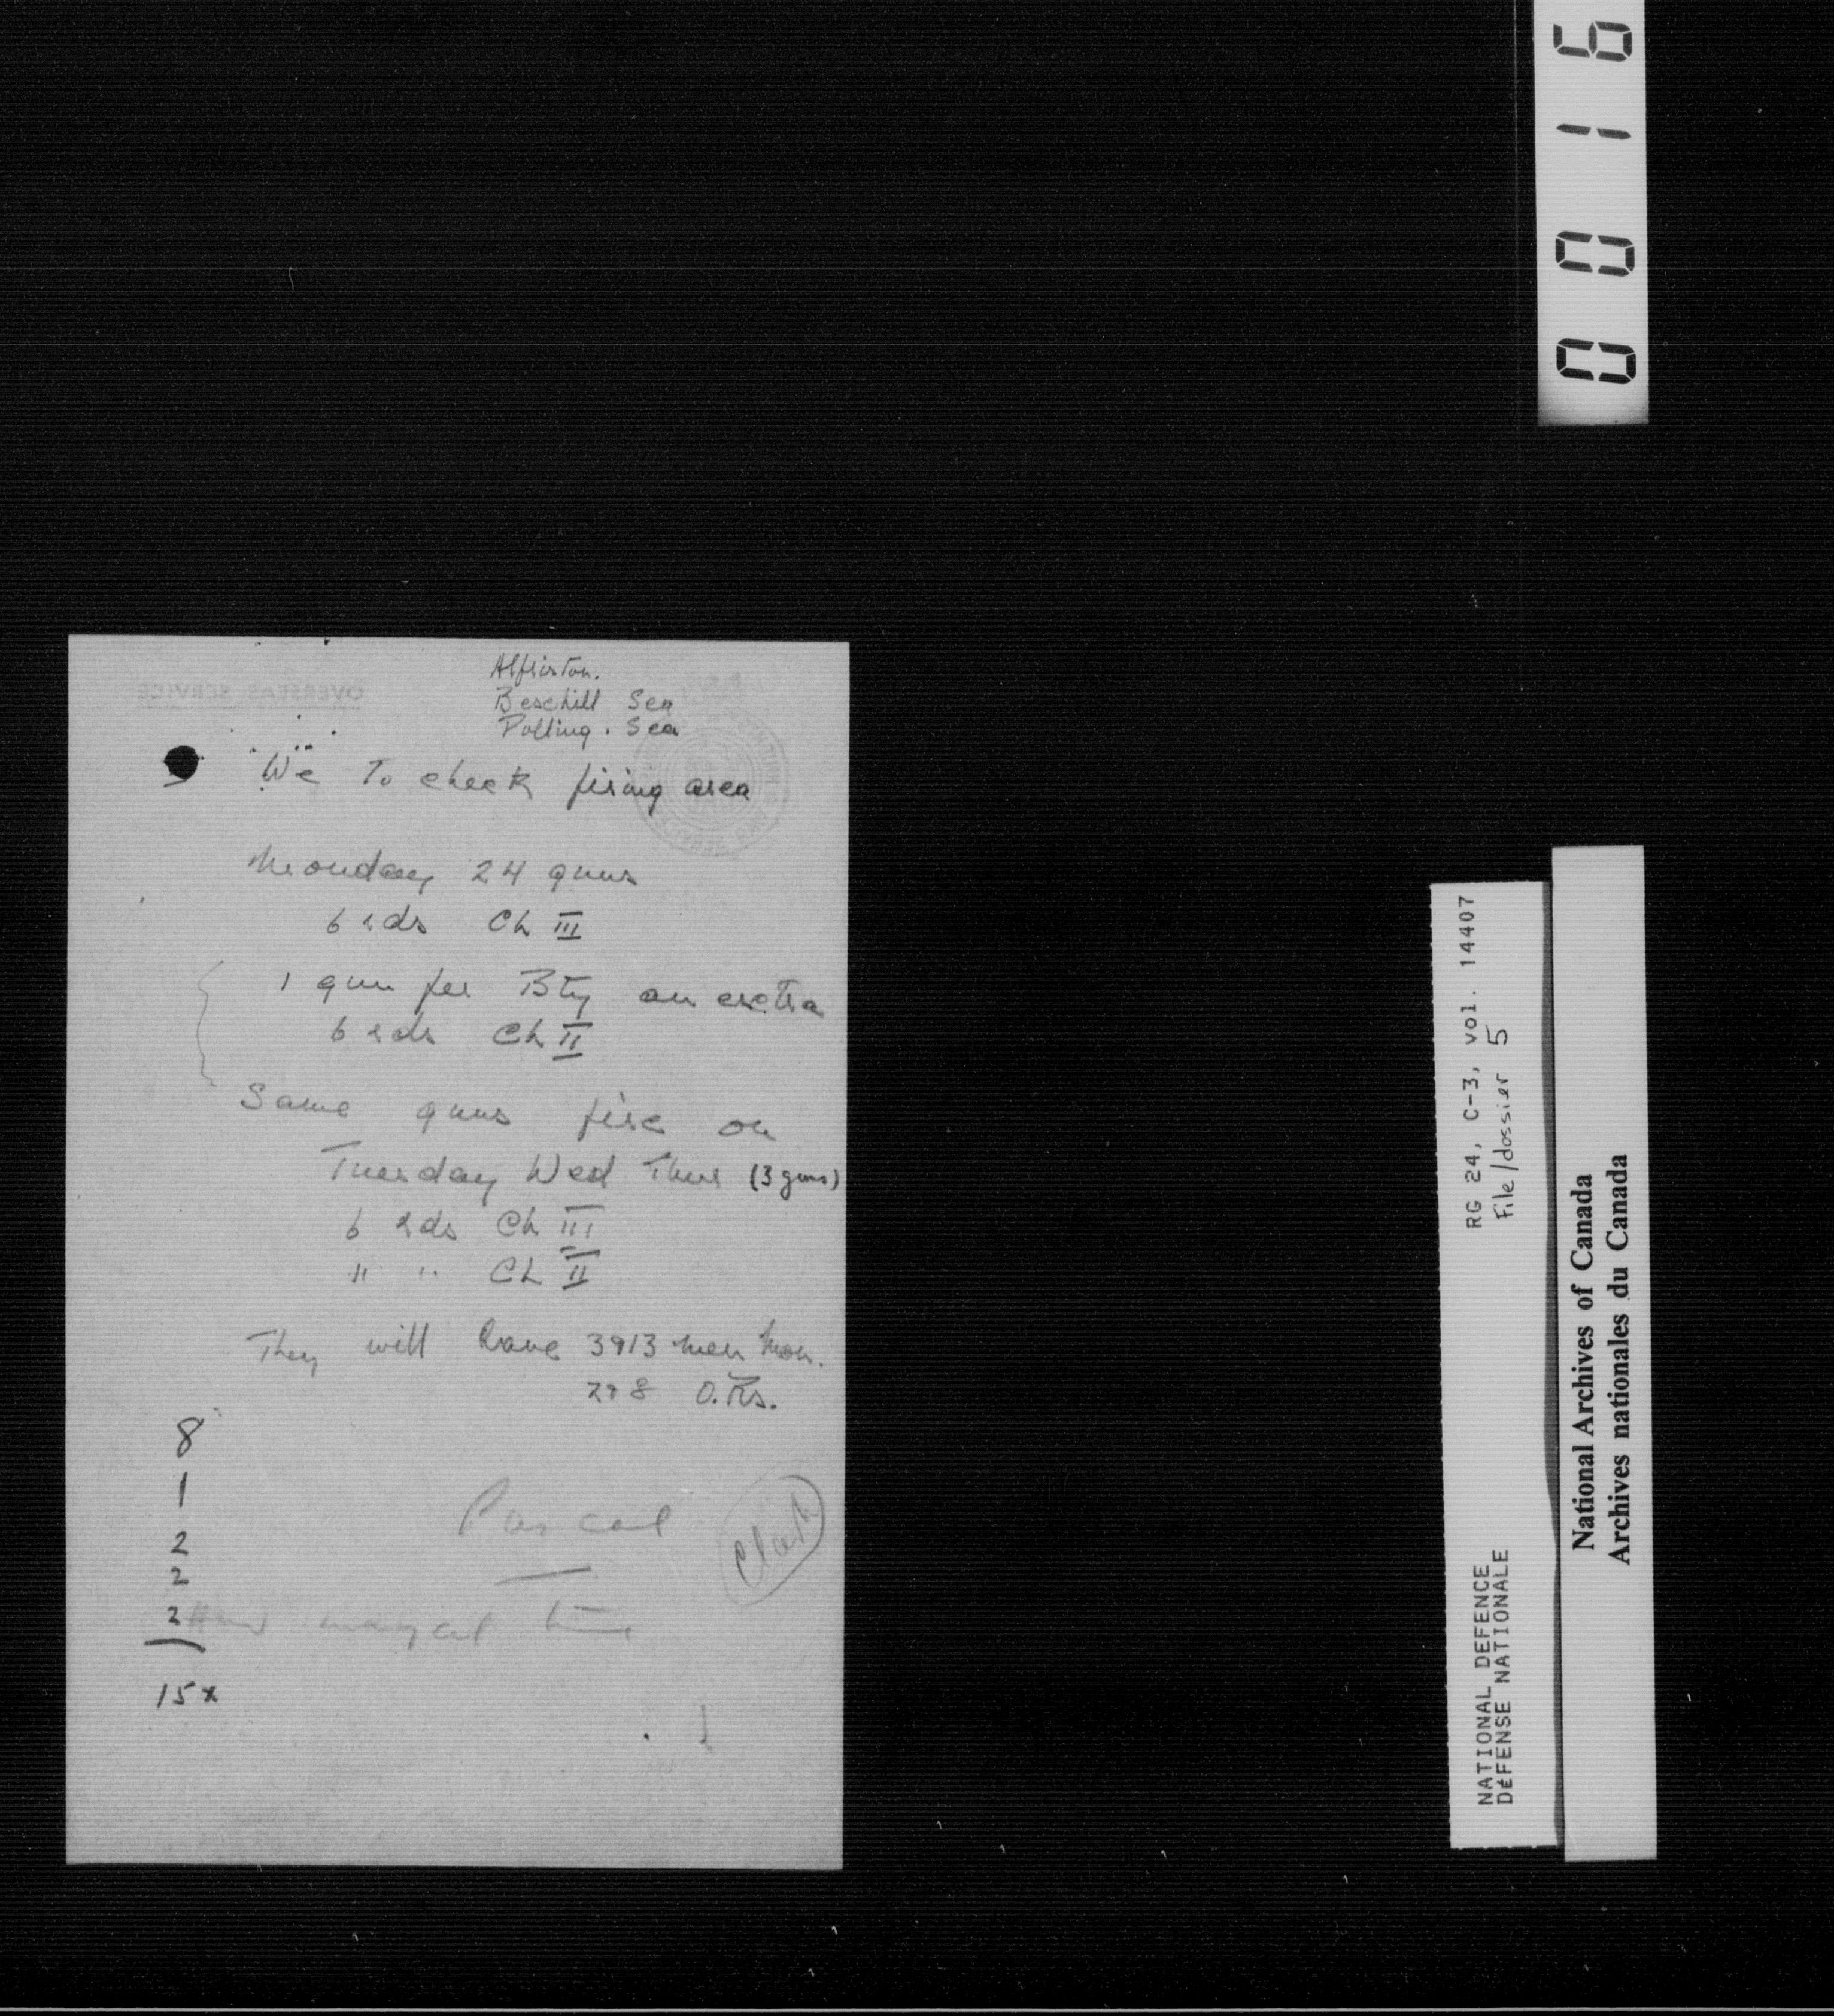 0016
Alfriston.
Bexhill Sea
Polling. Sea
OVERSEAS SERVICE
We To check firing area
Monday 24 guns
6 rds Ch III
1 gun per Bty an extra
6 rds Ch II
Same guns fire on
Tuesday Wed Thur (3 guns)
6 rds Ch III
" " Ch II
They will have 3913 men Mon.
278 O.Rs.
8
1
2
2
2
15x
Pascal
Clark
time
RG 24, C-3, vol. 14407
File/dossier 5
NATIONAL DEFENCE
DÉFENSE NATIONALE
National Archives of Canada
Archives nationales du Canada